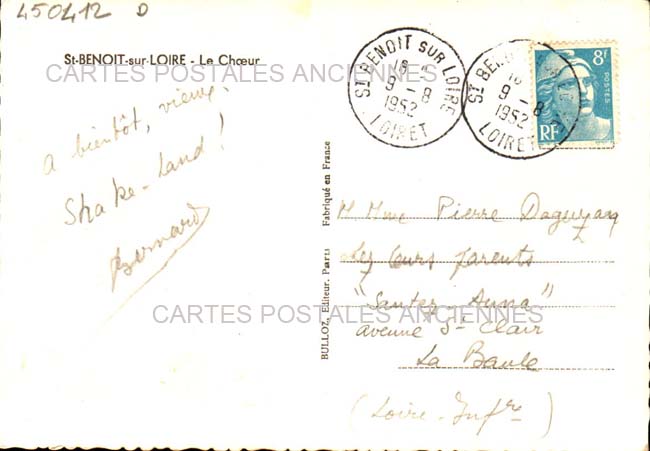 450412 D
St-BENOIT-sur-LOIRE - Le Chœur
CARTES POSTALES ANCIENNES
A bientôt, vieux.
Shake-hand !
Bernard
ST BENOIT SUR LOIRE
16
9 - 8
1952
LOIRET
ST BENOIT
16
9 - 8
1952
LOIRET
8F
POSTES
RF
BULLOZ, Editeur. PARIS Fabriqué en France
M Mme Pierre
chez leurs parents
"Santez-Anna"
CARTES POSTALES ANCIENNES
avenue St Clair
La Baule
(Loire-Infre)